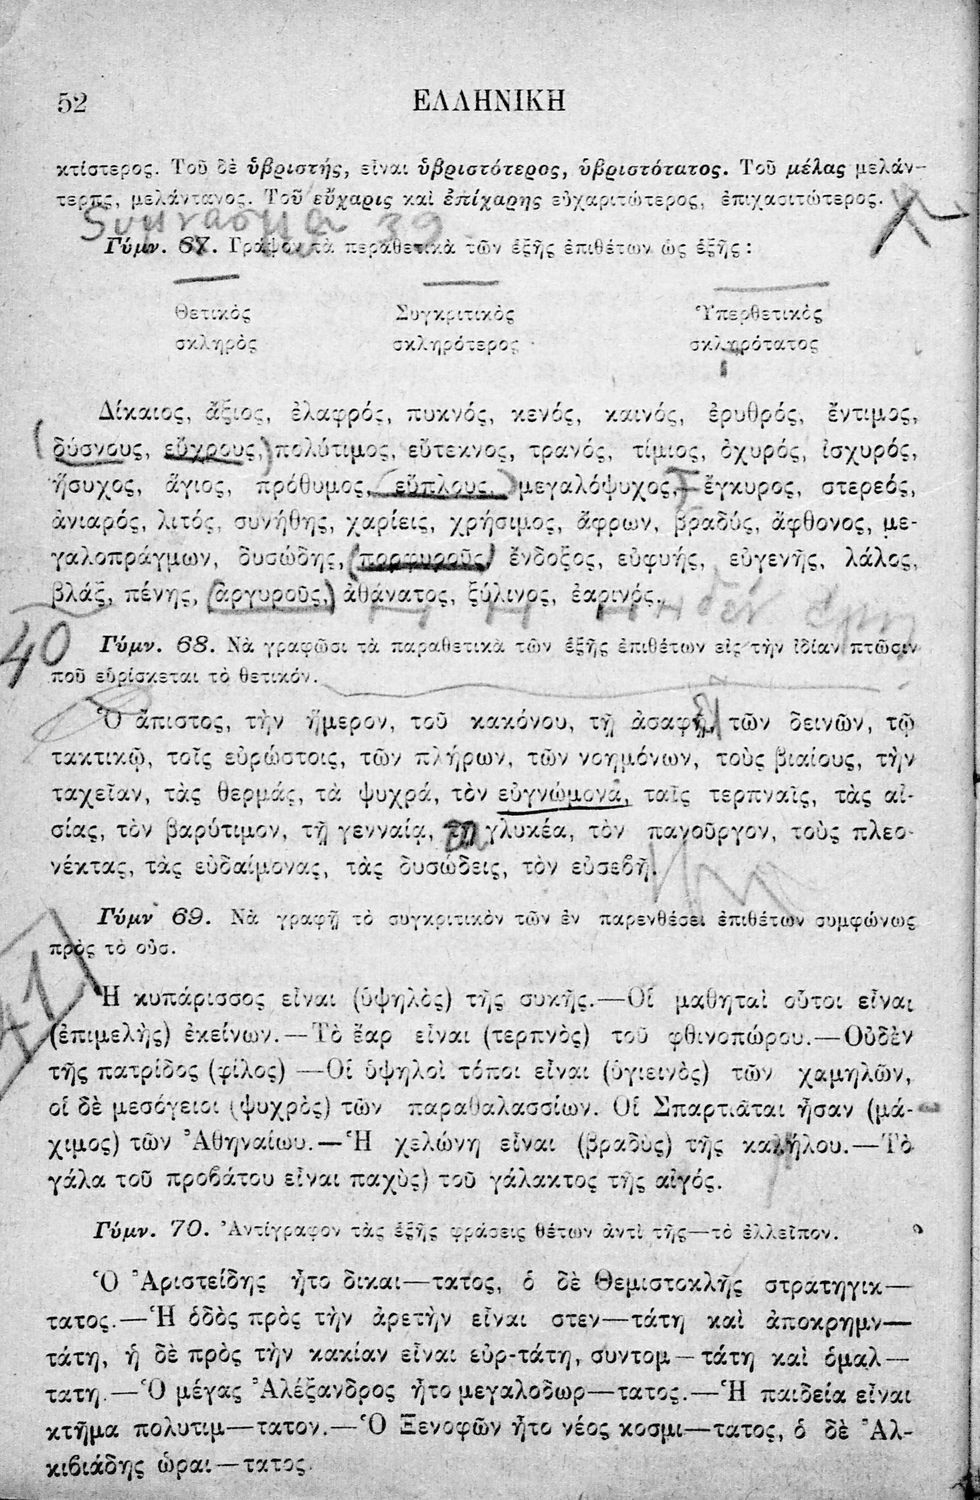 52 ΕΛΛΗΝΙΚΗ
κτίστερος. Τοῦ δὲ ὑβριστής, εἶναι ὑβριστότερος, ὑβριστότατος. Τοῦ μέλας μελάν-
τερος, μελάντανος. Τοῦ εὔχαρις καὶ ἐπίχαρης εὐχαριτώτερος, ἐπιχασιτώτερος.
Γυμνασμα 39
Γύμν. 67. Γράψον τὰ περαθετικὰ τῶν ἑξῆς ἐπιθέτων ὡς ἑξῆς :
Θετικὸς Συγκριτικὸς Ὑπερθετικὸς
σκληρὸς σκληρότερος σκληρότατος
Δίκαιος, ἄξιος, ἐλαφρός, πυκνός, κενός, καινός, ἐρυθρός, ἔντιμος,
(δύσνους, εὔχρους,) πολύτιμος, εὔτεκνος, τρανός, τίμιος, ὀχυρός, ἰσχυρός,
ἥσυχος, ἅγιος, πρόθυμος, (εὔπλους,) μεγαλόψυχος, ἔγκυρος, στερεός,
ἀνιαρός, λιτός, συνήθης, χαρίεις, χρήσιμος, ἄφρων, βραδύς, ἄφθονος, με-
γαλοπράγμων, δυσώδης, (πορφυροῦς) ἔνδοξος, εὐφυής, εὐγενής, λάλος,
βλάξ, πένης, (ἀργυροῦς,) ἀθάνατος, ξύλινος, ἐαρινός. δέν
40 Γύμν. 68. Νὰ γραφῶσι τὰ παραθετικὰ τῶν ἑξῆς ἐπιθέτων εἰς τὴν ἰδίαν πτῶσιν
ποῦ εὑρίσκεται τὸ θετικόν.
Ὁ ἄπιστος, τὴν ἥμερον, τοῦ κακόνου, τῇ ἀσαφῆ, τῶν δεινῶν, τῷ
τακτικῷ, τοῖς εὐρώστοις, τῶν πλήρων, τῶν νοημόνων, τοὺς βιαίους, τὴν
ταχεῖαν, τὰς θερμάς, τὰ ψυχρά, τὸν εὐγνώμονα, ταῖς τερπναῖς, τὰς αἰ-
σίας, τὸν βαρύτιμον, τῇ γενναίᾳ, γλυκέα, τὸν πανοῦργον, τοὺς πλεο-
νέκτας, τὰς εὐδαίμονας, τὰς δυσώδεις, τὸν εὐσεβῆ.
Γύμν 69. Νὰ γραφῇ τὸ συγκριτικὸν τῶν ἐν παρενθέσει ἐπιθέτων συμφώνως
πρὸς τὸ οὐσ.
41 Ἡ κυπάρισσος εἶναι (ὑψηλὸς) τῆς συκῆς.—Οἱ μαθηταὶ οὗτοι εἶναι
(ἐπιμελὴς) ἐκείνων.—Τὸ ἔαρ εἶναι (τερπνὸς) τοῦ φθινοπώρου.—Οὐδὲν
τῆς πατρίδος (φίλος) —Οἱ ὑψηλοὶ τόποι εἶναι (ὑγιεινὸς) τῶν χαμηλῶν,
οἱ δὲ μεσόγειοι (ψυχρὸς) τῶν παραθαλασσίων. Οἱ Σπαρτιᾶται ἦσαν (μά-
χιμος) τῶν Ἀθηναίων.—Ἡ χελώνη εἶναι (βραδὺς) τῆς καμήλου.—Τὸ
γάλα τοῦ προβάτου εἶναι παχὺς) τοῦ γάλακτος τῆς αἰγός.
Γύμν. 70. Ἀντίγραφον τὰς ἑξῆς φράσεις θέτων ἀντὶ τῆς—τὸ ἐλλεῖπον.
Ὁ Ἀριστείδης ἦτο δικαι—τατος, ὁ δὲ Θεμιστοκλῆς στρατηγικ—
τατος.—Ἡ ὁδὸς πρὸς τὴν ἀρετὴν εἶναι στεν—τάτη καὶ ἀποκρημν—
τάτη, ἡ δὲ πρὸς τὴν κακίαν εἶναι εὐρ-τάτη, συντομ—τάτη καὶ ὁμαλ—
τατη.—Ὁ μέγας Ἀλέξανδρος ἦτο μεγαλοδωρ—τατος.—Ἡ παιδεία εἶναι
κτῆμα πολυτιμ—τατον.—Ὁ Ξενοφῶν ἦτο νέος κοσμι—τατος, ὁ δὲ Ἀλ-
κιβιάδης ὡραι—τατος